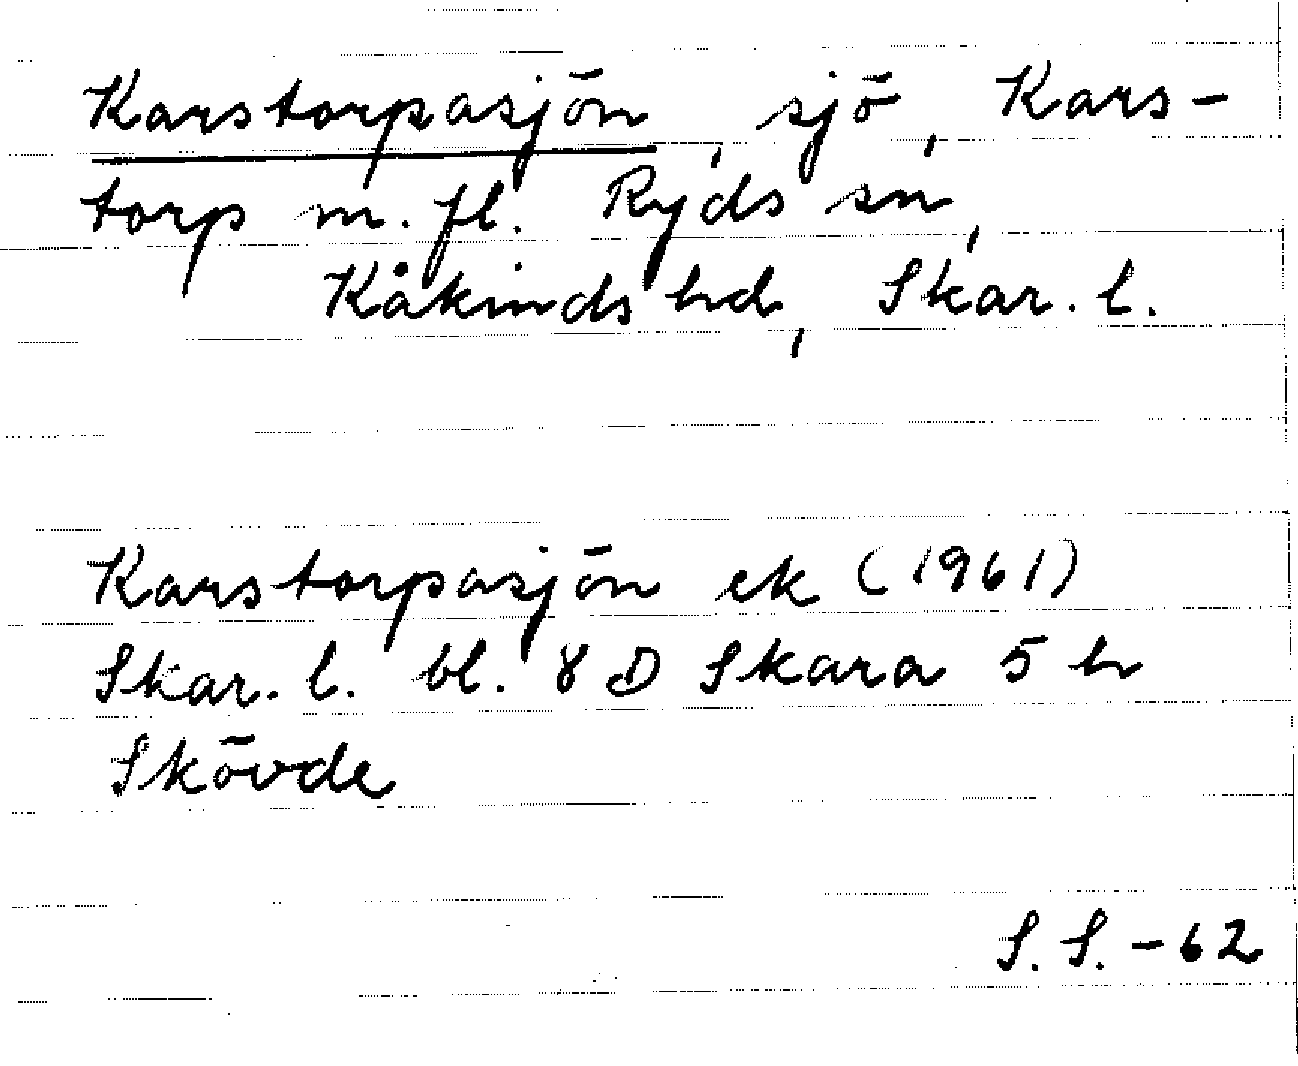 Karstorpasjön, sjö, Kars-
torp m. fl. Ryds sn,
Kåkinds hd, Skar. l.
Karstorpasjön ek (1961)
Skar. l. bl. 8 D Skara 5 h
Skövde
S. S. - 62